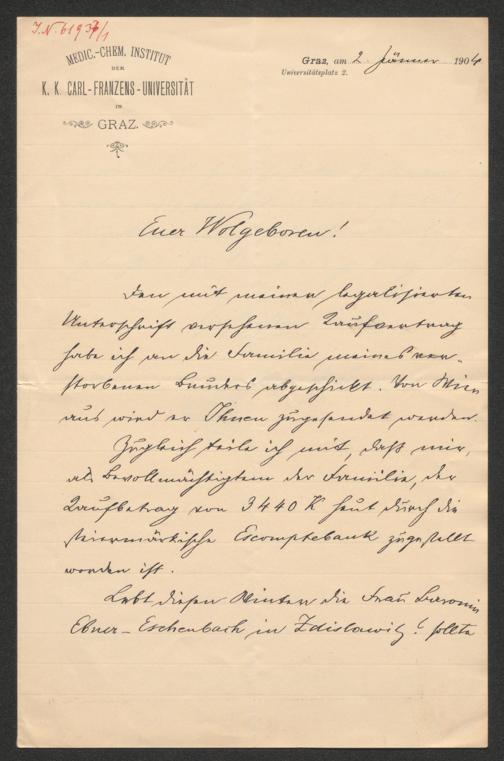 J.N. 61937/1
MEDIC.-CHEM. INSTITUT
DER
K. K. CARL-FRANZENS-UNIVERSITÄT
IN
GRAZ.
Graz, am 2. Jänner 1904
Universitätsplatz 2.
Euer Wolgeboren!
Den mit meiner legalisierten
Unterschrift versehenen Kaufvertrag
habe ich an die Familie meines ver-
storbenen Bruders abgeschickt. Von Wien
aus wird er Ihnen zugesendet werden.
Zugleich teile ich mit, daß mir,
als Bevollmächtigtem der Familie, der
Kaufbetrag von 3440 K heut durch die
steiermärkische Escomptebank zugestellt
worden ist.
Lebt diesen Winter die Frau Baronin
Ebner-Eschenbach in Zdislawitz? sollte